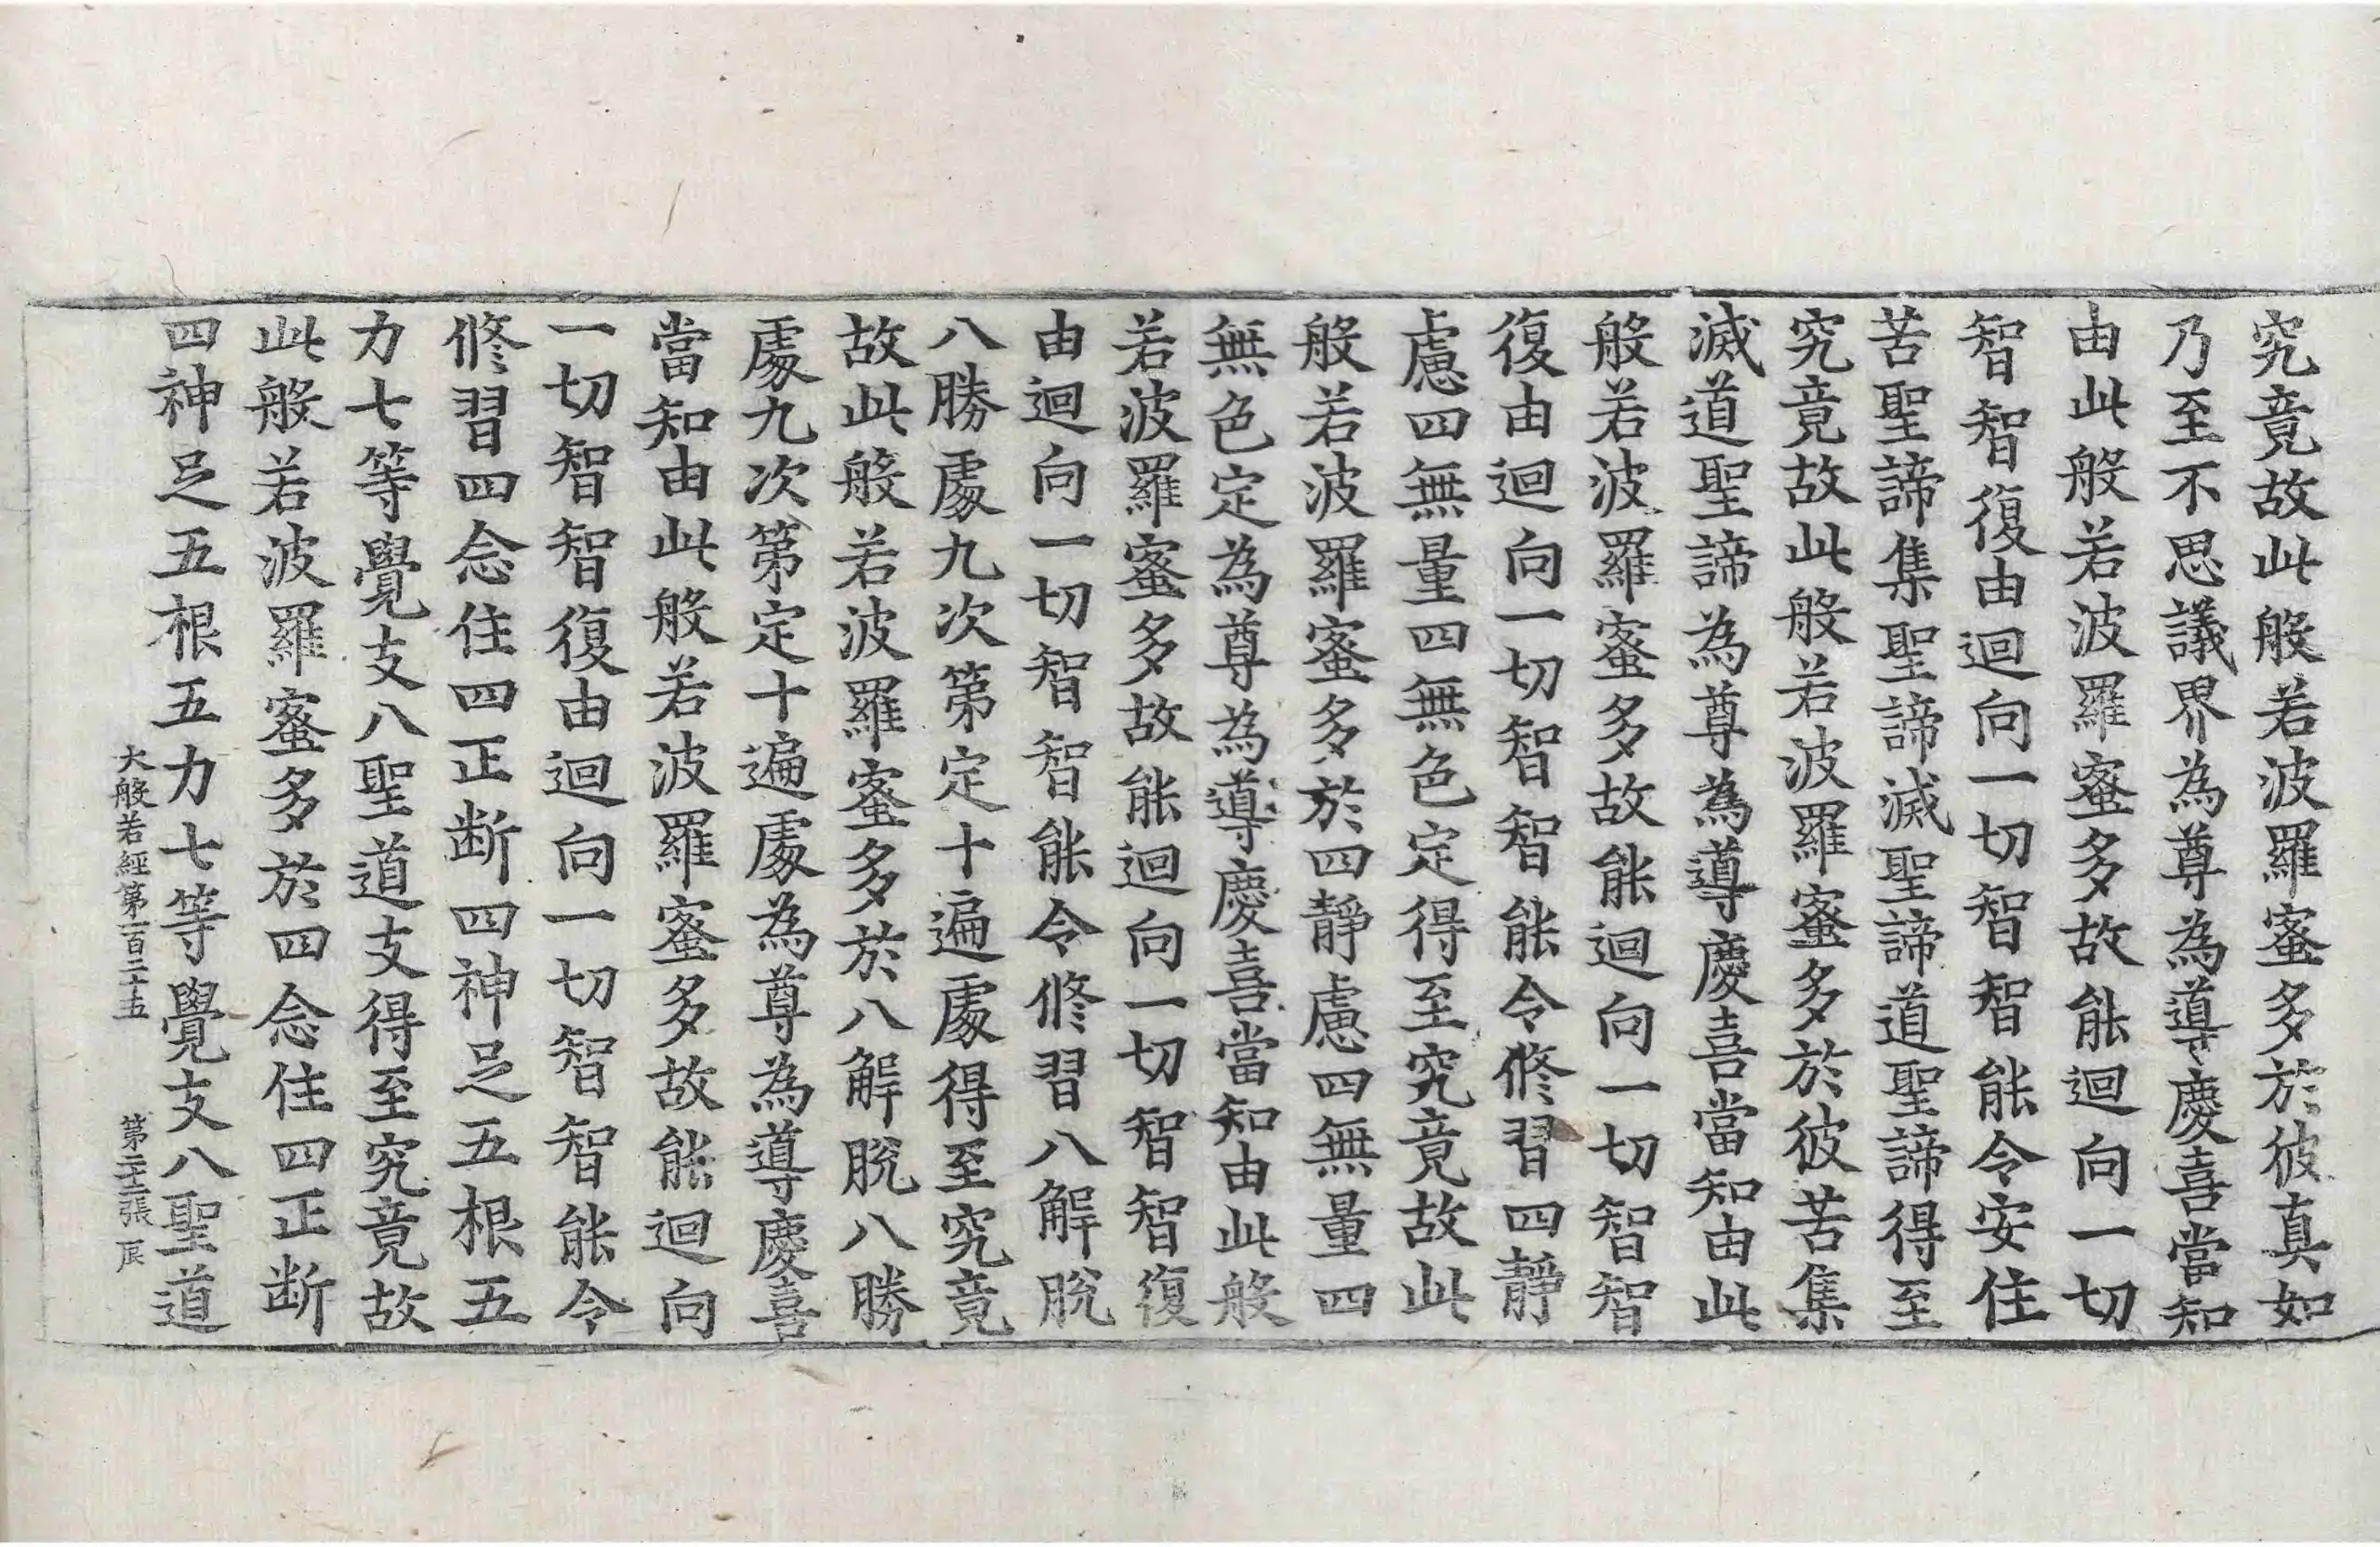 究竟故此般若波羅蜜多於彼真如
乃至不思議界為尊為導慶喜當知
由此般若波羅蜜多故能迴向一切
智智復由迴向一切智智能令安住
苦聖諦集聖諦滅聖諦道聖諦得至
究竟故此般若波羅蜜多於彼苦集
滅道聖諦為尊為導慶喜當知由此
般若波羅蜜多故能迴向一切智智
復由迴向一切智智能令修習四靜
慮四無量四無色定得至究竟故此
般若波羅蜜多於四靜慮四無量四
無色定為尊為導慶喜當知由此般
若波羅蜜多故能迴向一切智智復
由迴向一切智智能令修習八解脫
八勝處九次第定十遍處得至究竟
故此般若波羅蜜多於八解脫八勝
處九次第定十遍處為尊為導慶喜
當知由此般若波羅蜜多故能迴向
一切智智復由迴向一切智智能令
修習四念住四正断四神足五根五
力七等覺支八聖道支得至究竟故
此般若波羅蜜多於四念住四正断
四神足五根五力七等覺支八聖道
大般若經第一百二十五 第二十二張